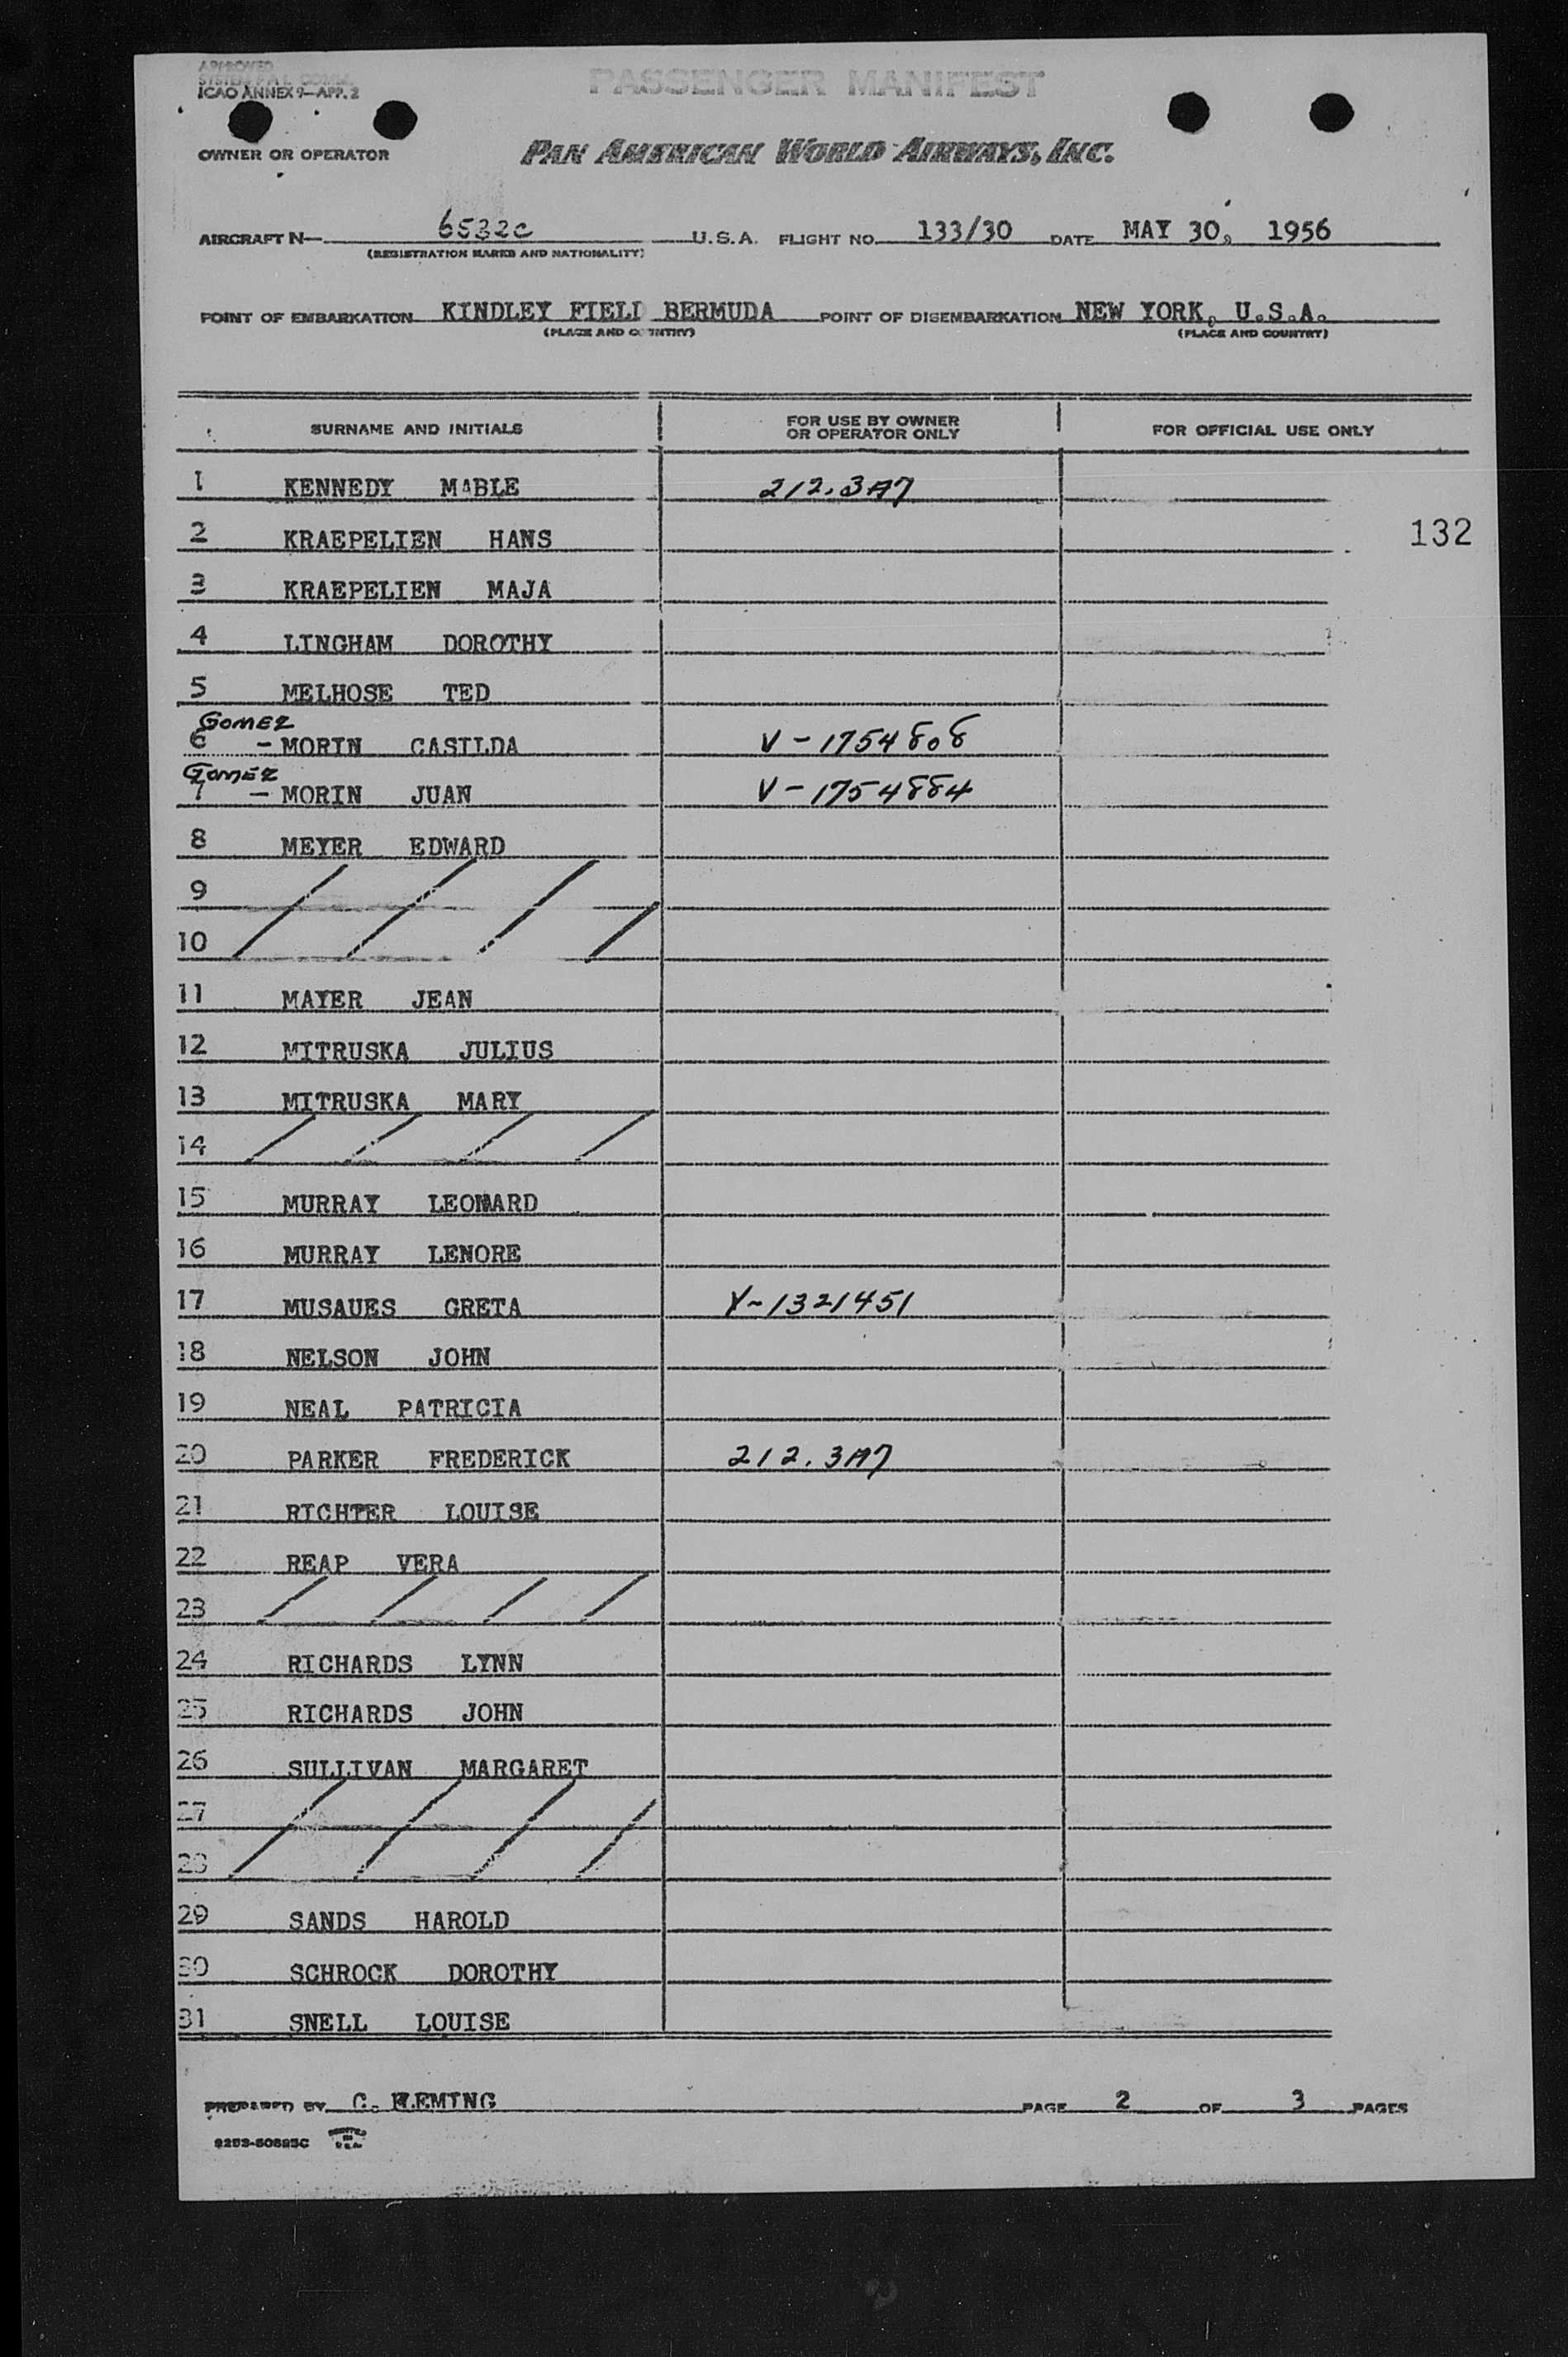 APPROVED
ICAO ANNEX 9-APP. 2
PASSENGER MANIFEST
OWNER OR OPERATOR PAN AMERICAN WORLD AIRWAYS, INC.
AIRCRAFT N— 6532C U.S.A. FLIGHT NO. 133/30 DATE MAY 30, 1956
(REGISTRATION MARKS AND NATIONALITY)
POINT OF EMBARKATION KINDLEY FIELD BERMUDA POINT OF DISEMBARKATION NEW YORK, U.S.A.
(PLACE AND COUNTRY) (PLACE AND COUNTRY)
SURNAME AND INITIALS FOR USE BY OWNER OR OPERATOR ONLY FOR OFFICIAL USE ONLY
1 KENNEDY MABLE 212.3A7
132
2 KRAEPELIEN HANS
3 KRAEPELIEN MAJA
4 LINGHAM DOROTHY
5 MELHOSE TED
Gomez
6 - MORIN CASILDA V-1754808
Gomez
7 - MORIN JUAN V-1754884
8 MEYER EDWARD
9
10
11 MAYER JEAN
12 MITRUSKA JULIUS
13 MITRUSKA MARY
14
15 MURRAY LEONARD
16 MURRAY LENORE
17 MUSAUES GRETA V-1321451
18 NELSON JOHN
19 NEAL PATRICIA
20 PARKER FREDERICK 212.3A7
21 RICHTER LOUISE
22 REAP VERA
23
24 RICHARDS LYNN
25 RICHARDS JOHN
26 SULLIVAN MARGARET
27
28
29 SANDS HAROLD
30 SCHROCK DOROTHY
31 SNELL LOUISE
PREPARED BY C. FLEMING PAGE 2 OF 3 PAGES